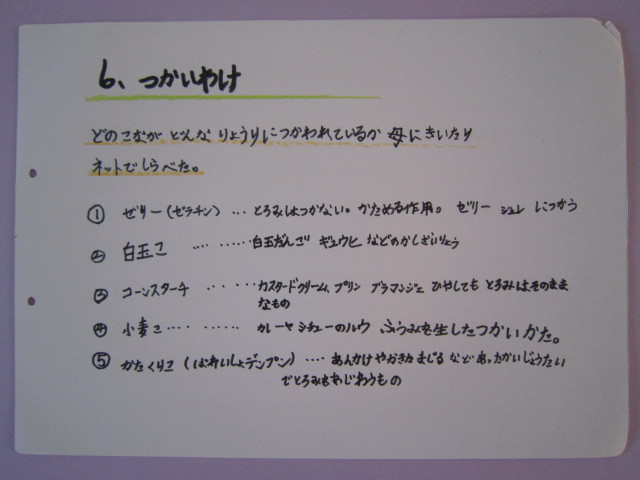 6、つかいわけ
どのこながどんなりょうりにつかわれているか母にきいたり
ネットでしらべた。
① ゼリー(ゼラチン) … とろみはつかない。かためる作用。ゼリー ジュレ につかう
② 白玉こ ‥‥ ‥‥‥ 白玉だんご ギュウヒ などのかしざいりょう
③ コーンスターチ ‥‥‥ カスタードクリーム、プリン ブラマンジェ ひやしても とろみはそのまま
なもの
④ 小麦こ‥‥ ‥‥‥ カレーやシチューのルウ ふうみを生したつかいかた。
⑤ かたくりこ(ばれいしょデンプン)‥‥ あんかけやおきなましる などあったかいじょうたい
でとろみをあじわうもの